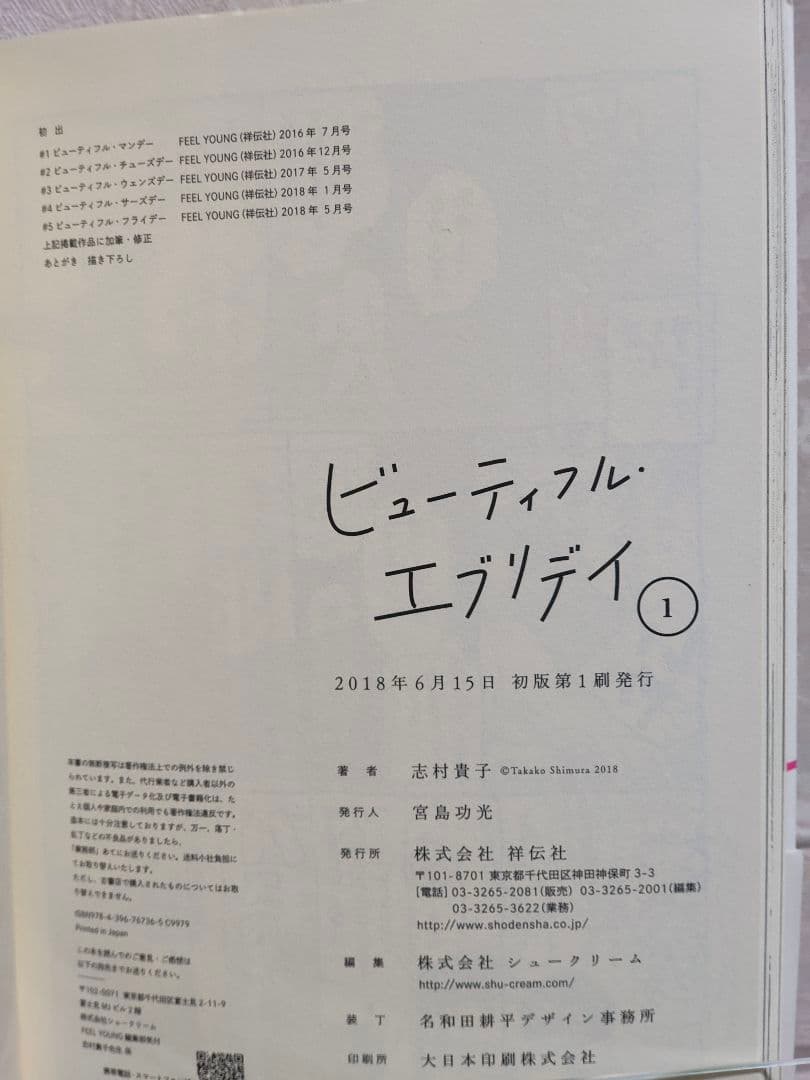 初出
#1 ビューティフル・マンデー FEEL YOUNG (祥伝社) 2016年 7月号
#2 ビューティフル・チューズデー FEEL YOUNG (祥伝社) 2016年12月号
#3 ビューティフル・ウェンズデー FEEL YOUNG (祥伝社) 2017年 5月号
#4 ビューティフル・サーズデー FEEL YOUNG (祥伝社) 2018年 1月号
#5 ビューティフル・フライデー FEEL YOUNG (祥伝社) 2018年 5月号
上記掲載作品に加筆・修正
あとがき 描き下ろし
ビューティフル・
エブリデイ 1
2018年6月15日 初版第1刷発行
著者 志村貴子 ©Takako Shimura 2018
発行人 宮島功光
発行所 株式会社 祥伝社
〒101-8701 東京都千代田区神田神保町 3-3
[電話] 03-3265-2081(販売) 03-3265-2001(編集)
03-3265-3622(業務)
http://www.shodensha.co.jp/
編集 株式会社 シュークリーム
http://www.shu-cream.com/
装丁 名和田耕平デザイン事務所
印刷所 大日本印刷株式会社
本書の無断複写は著作権法上での例外を除き禁じ
られています。また、代行業者など購入者以外の
第三者による電子データ化及び電子書籍化は、た
とえ個人や家庭内での利用でも著作権法違反です。
造本には十分注意しておりますが、万一、落丁・
乱丁などの不良品がありましたら、
「業務部」あてにお送りください。送料小社負担に
てお取り替えいたします。
ただし、古書店で購入されたものについてはお取
り替えできません。
ISBN978-4-396-76736-5 C9979
Printed in Japan
この本を読んでのご意見・ご感想は
以下の宛先までお送りください。
〒102-0071 東京都千代田区富士見 2-11-9
富士見MJビル2階
株式会社シュークリーム
FEEL YOUNG 編集部気付
志村貴子先生 係
携帯電話・スマートフォン